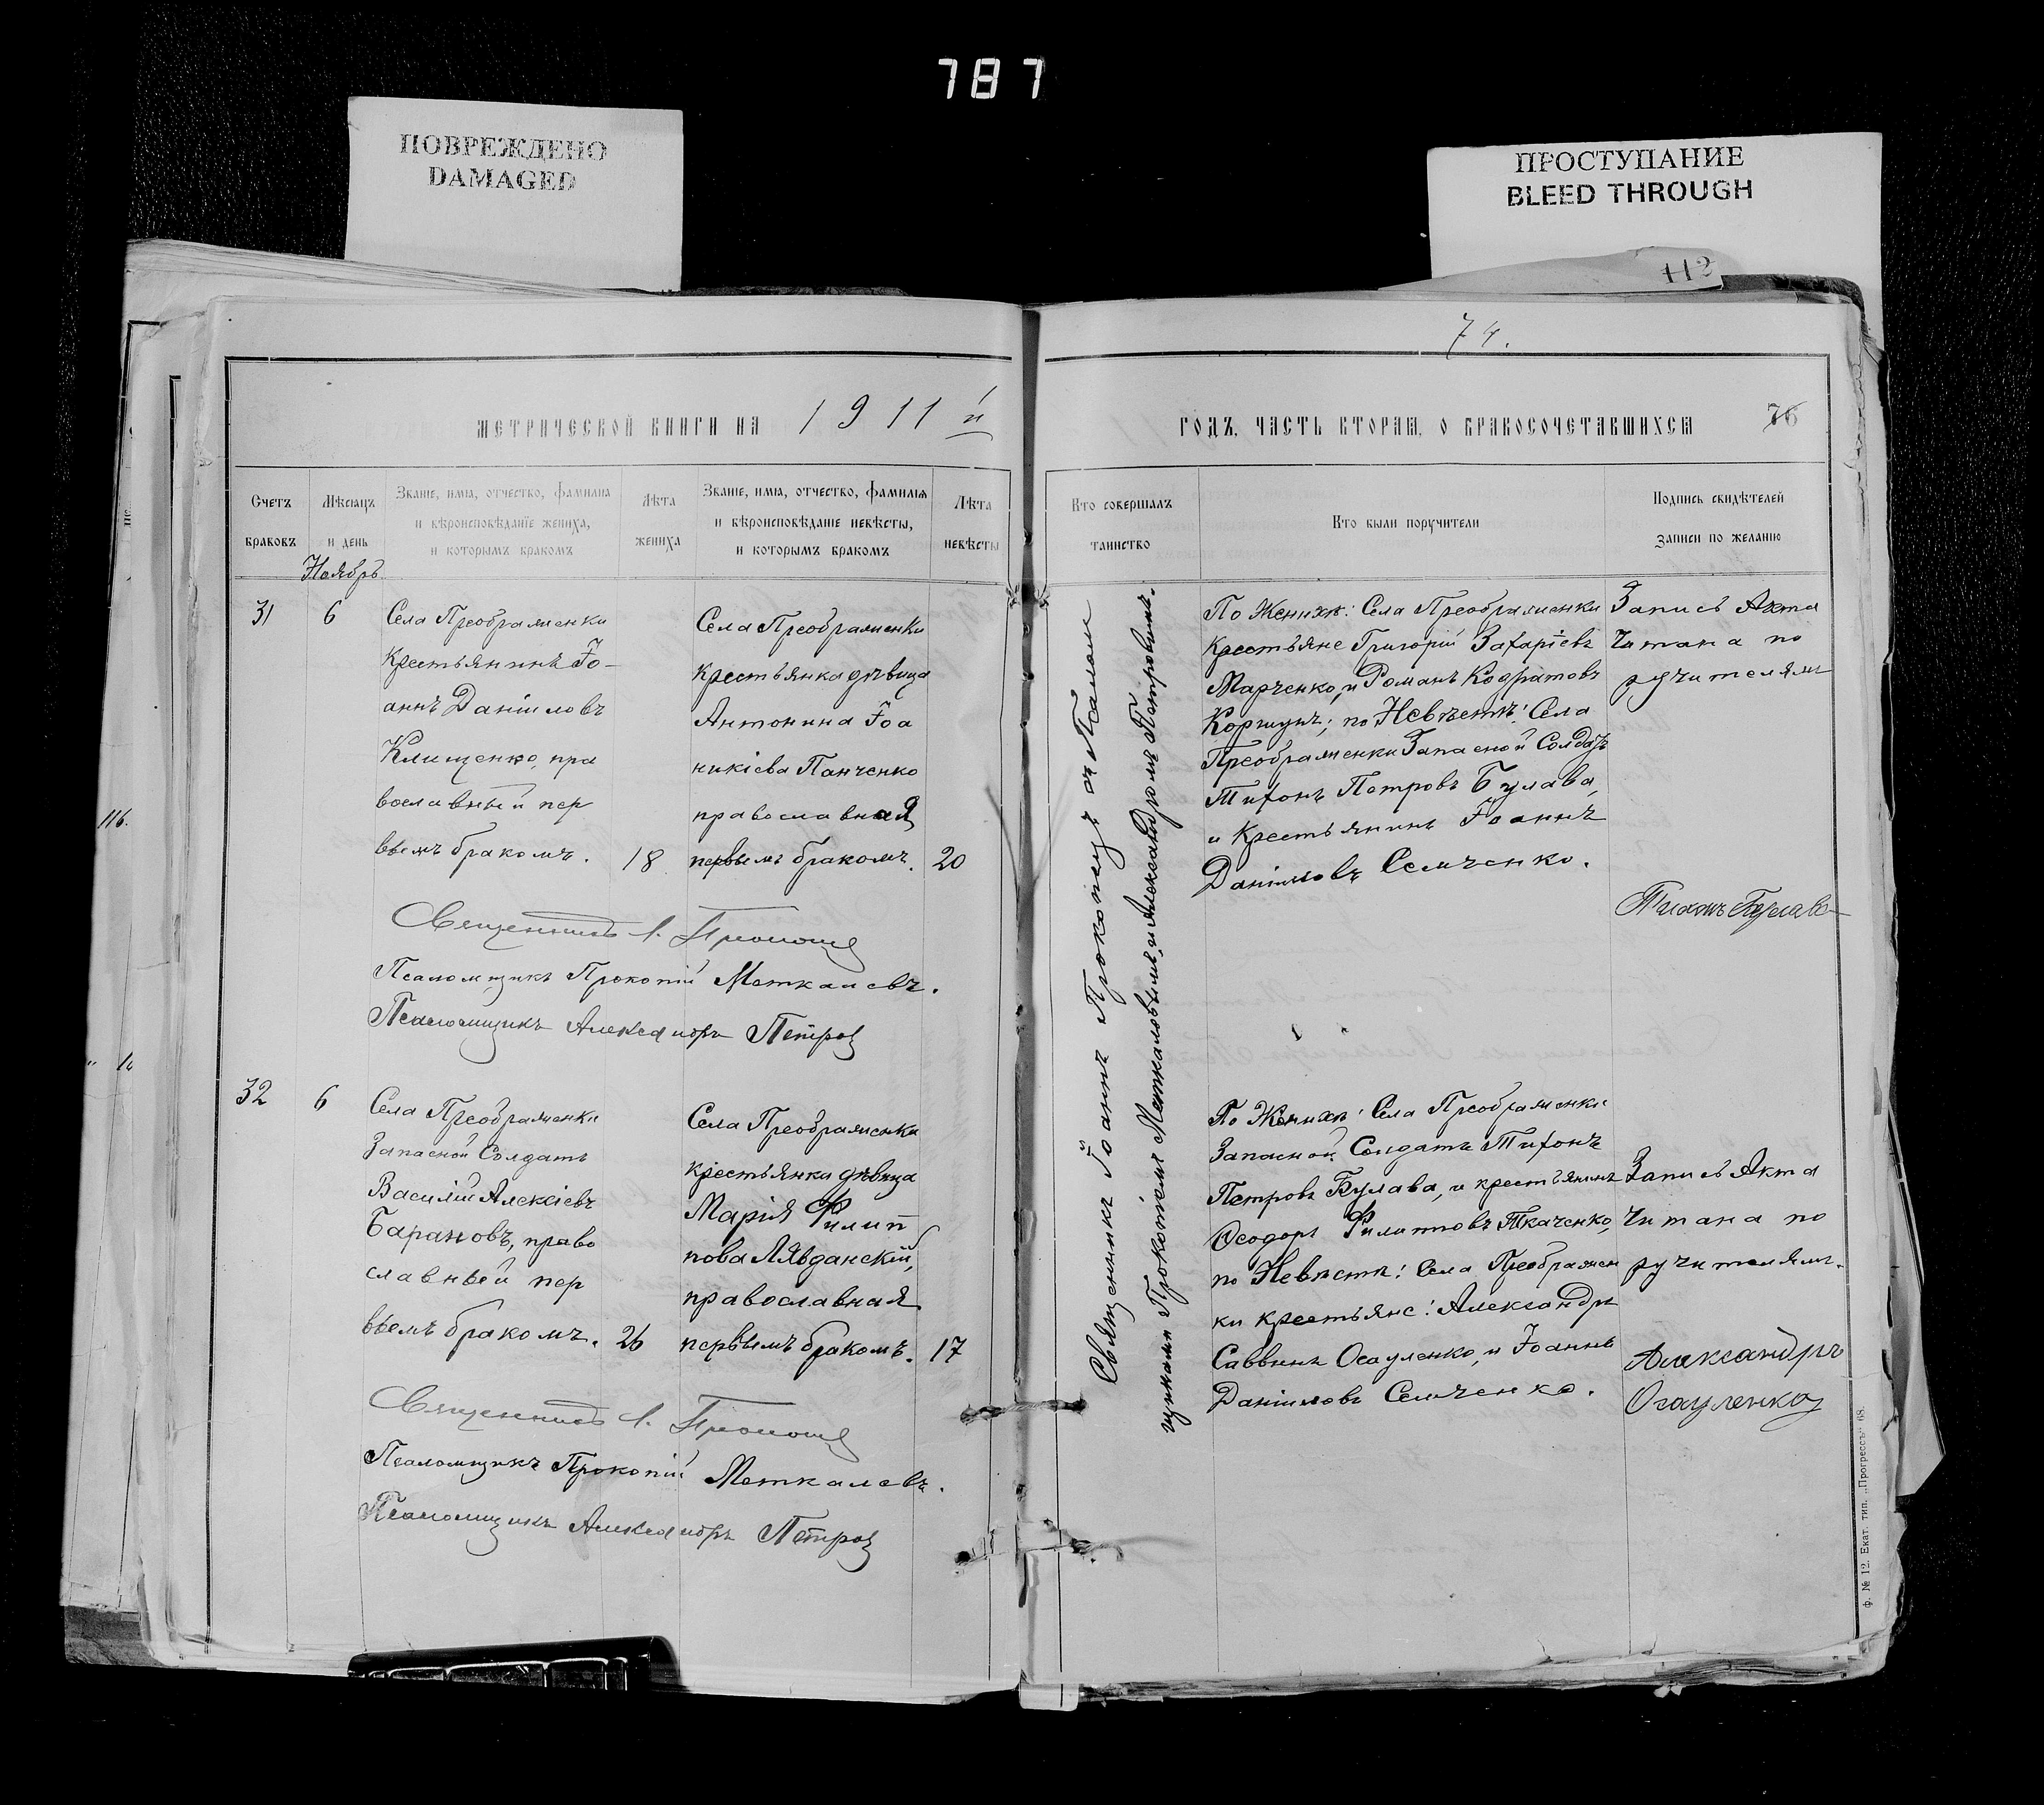 787
ПОВРЕЖДЕНО
DAMAGED
ПРОСТУПАНИЕ
BLEED THROUGH
112
74.
МЕТРИЧЕСКОЙ КНИГИ НА 1911й
ГОДЪ, ЧАСТЬ ВТОРАЯ, О БРАКОСОЧЕТАВШИХСЯ
76
Счетъ
браковъ
Мѣсяцъ
и день
Званіе, имя, отчество, фамилія
и вѣроисповѣданіе жениха,
и которымъ бракомъ
Лѣта
жениха
Званіе, имя, отчество, фамилія
и вѣроисповѣданіе невѣсты,
и которымъ бракомъ
Лѣта
невѣсты
Кто совершалъ
таинство
Кто были поручители
Подпись свидѣтелей
записи по желанію
Ноябрь
31
6
Села Преображенки
крестьянинъ Іо-
аннъ Даніиловъ
Клищенко, пра
вославный пер
вымъ бракомъ.
18
Села Преображенки
крестьянка дѣвица
Антонина Іоа
никіева Панченко
православная
первымъ бракомъ.
20
Священникъ І.
Псаломщикъ Прокопій Меткалевъ.
Псаломщикъ Александръ Петров
32
6
Села Преображенки
Запасной Солдатъ
Василій Алексіевъ
Барановъ, право
славный пер
вымъ бракомъ.
26
Села Преображенки
крестьянка дѣвица
Марія Филип
пова
православная
первымъ бракомъ.
17
Священникъ І.
Псаломщикъ Прокопій Меткалевъ.
Псаломщикъ Александръ Петров
Священникъ Іоаннъ Прокопец съ Псалом
щиками Прокопіемъ Меткаловымъ, и Александромъ Петровымъ.
По Женихѣ: Села Преображенки
крестьяне Григорій Захаріевъ
Марченко, и Романъ Кодратовъ
Коршунъ; по Невѣстѣ: Села
Преображенки Запасной Солдатъ
Тихонъ Петровъ Булава,
и крестьянинъ Іоаннъ
Даніиловъ Семченко.
Запись Акта
Читана по
ручителямъ
Тихонъ Булава
По Женихѣ: Села Преображенки
Запасной Солдатъ Тихонъ
Петровъ Булава, и крестьянинъ
Ѳеодоръ Филипповъ Ткаченко,
по Невѣстѣ: Села Преображен
ки крестьяне: Александръ
Саввинъ Осауленко, и Іоаннъ
Даніиловъ Семченко.
Запись Акта
Читана по
ручителямъ.
Александръ
Осауленко
116.
ф. № 12. Екат. тип. „Прогрессъ" 68.